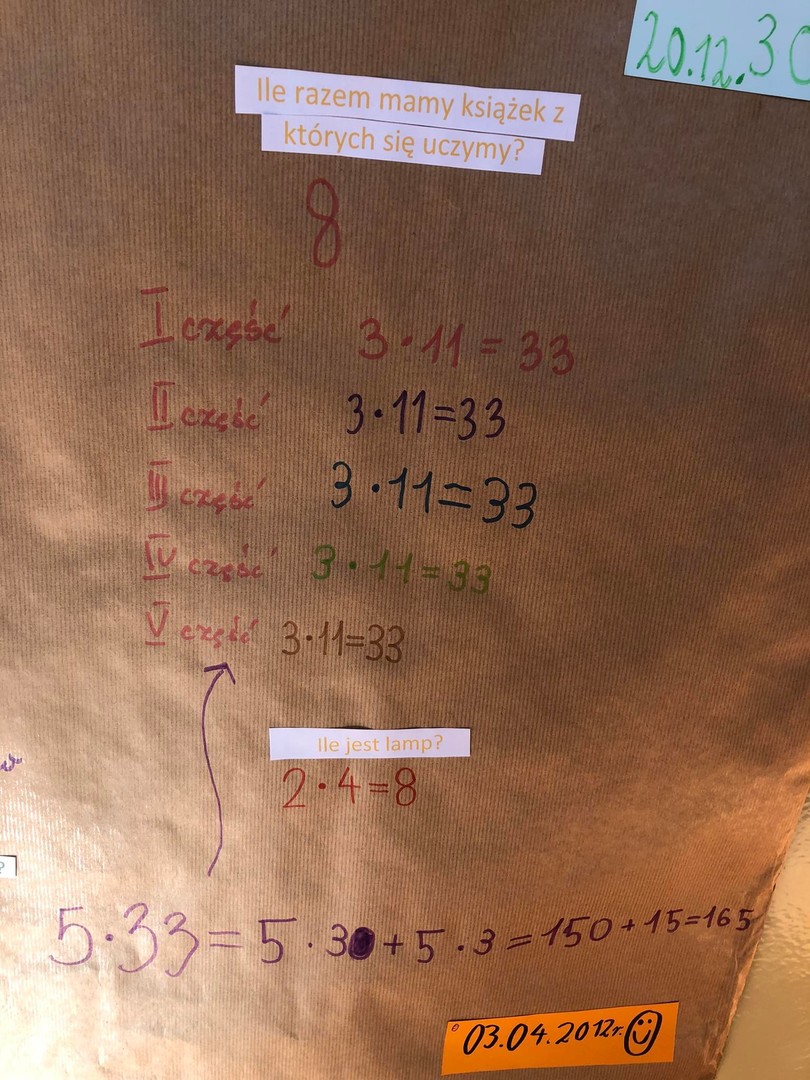 20.12.30
Ile razem mamy książek z
których się uczymy?
8
I część 3·11=33
II część 3·11=33
III część 3·11=33
IV część 3·11=33
V część 3·11=33
Ile jest lamp?
2·4=8
?
5·33=5·30+5·3=150+15=165
03.04.2012r.